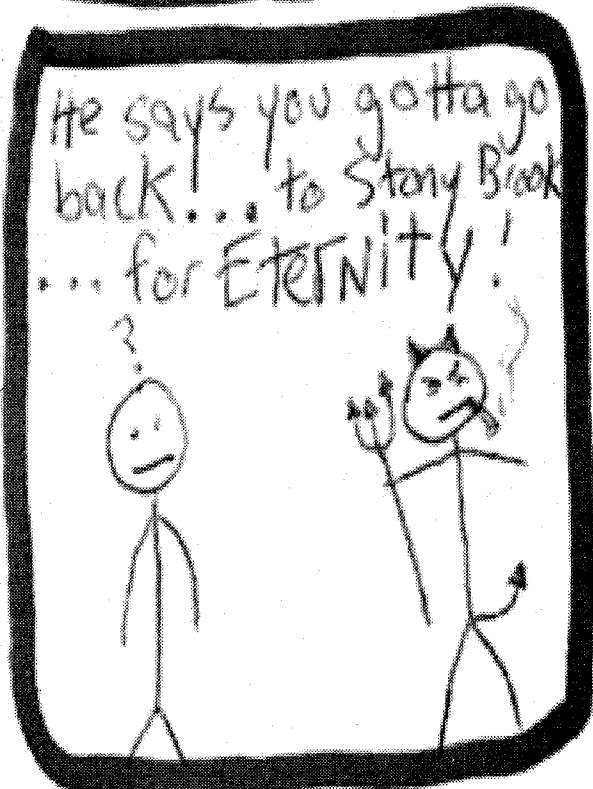 He says you gotta go
back... to Stony Brook
... for EteRNity!
?